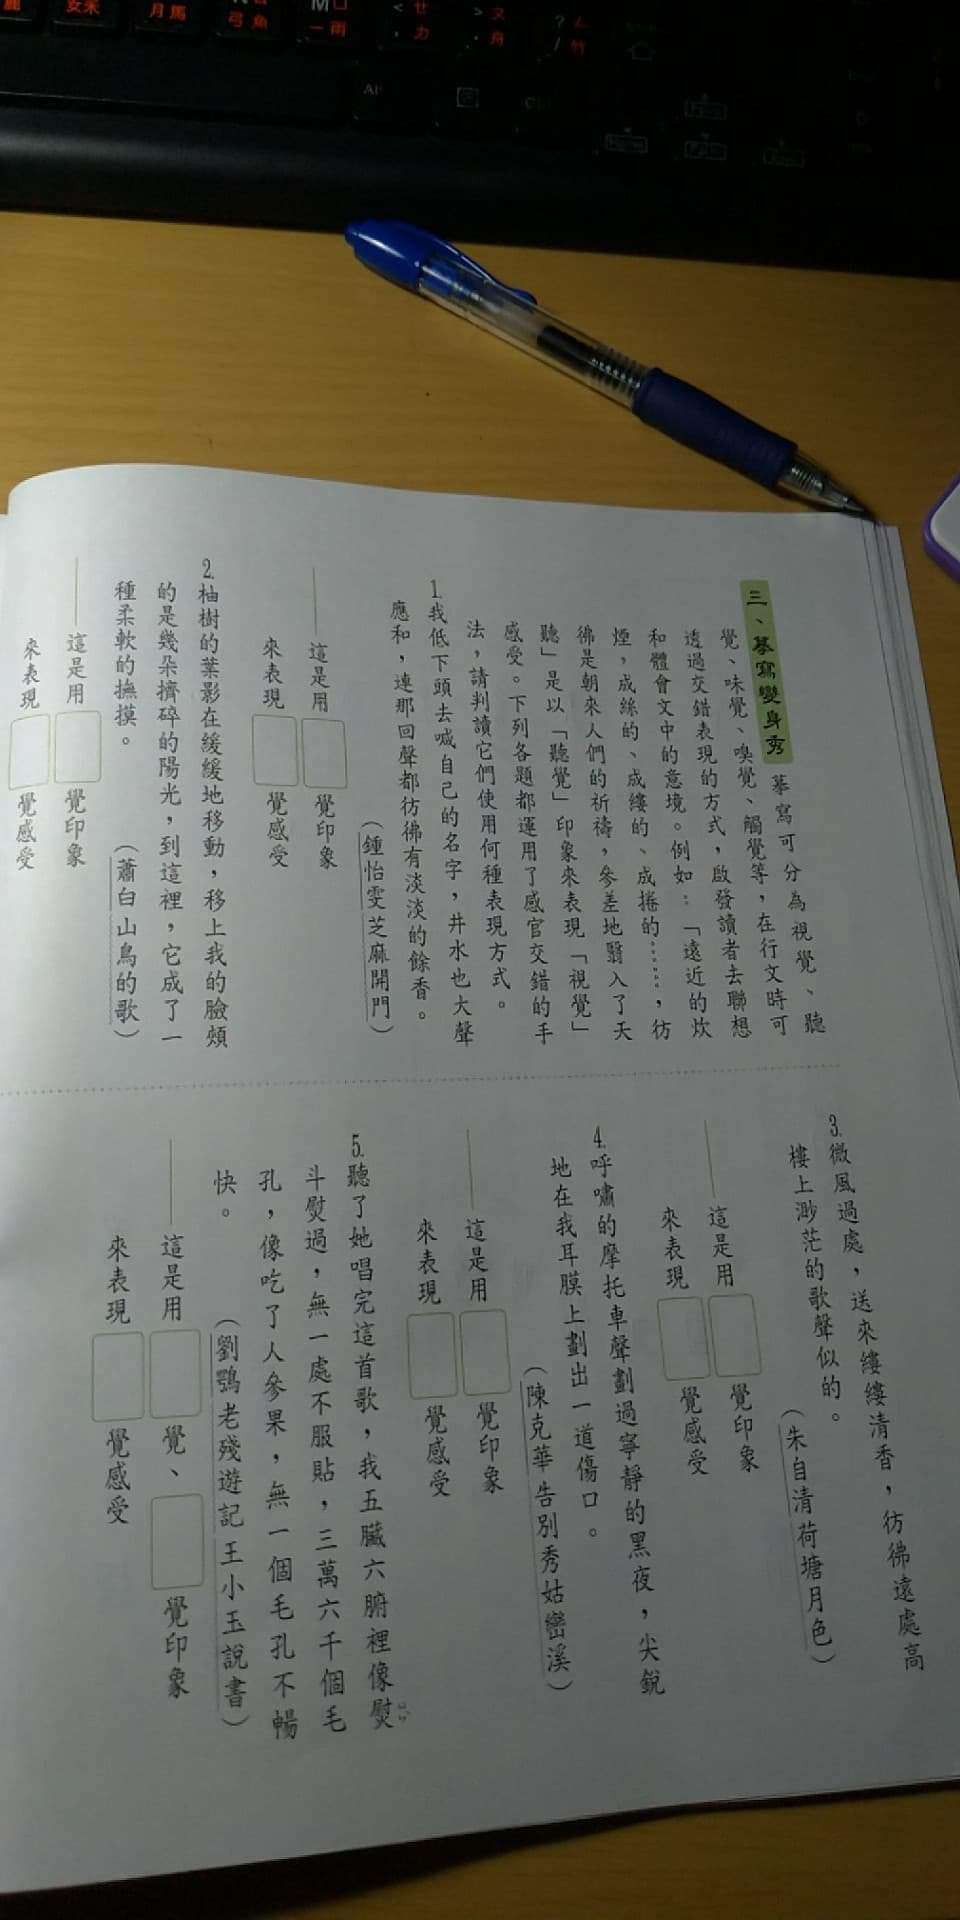 三、摹寫變身秀　摹寫可分為視覺、聽
覺、味覺、嗅覺、觸覺等，在行文時可
透過交錯表現的方式，啟發讀者去聯想
和體會文中的意境。例如：「遠近的炊
煙，成絲的、成縷的、成捲的……，彷
彿是朝來人們的祈禱，參差地翳入了天
聽」是以「聽覺」印象來表現「視覺」
感受。下列各題都運用了感官交錯的手
法，請判讀它們使用何種表現方式。
1.我低下頭去喊自己的名字，井水也大聲
應和，連那回聲都彷彿有淡淡的餘香。
（鍾怡雯芝麻開門）
——這是用　覺印象
來表現　覺感受
2.柚樹的葉影在緩緩地移動，移上我的臉頰
的是幾朵擠碎的陽光，到這裡，它成了一
種柔軟的撫摸。（蕭白山鳥的歌）
——這是用　覺印象
來表現　覺感受
3.微風過處，送來縷縷清香，彷彿遠處高
樓上渺茫的歌聲似的。（朱自清荷塘月色）
——這是用　覺印象
來表現　覺感受
4.呼嘯的摩托車聲劃過寧靜的黑夜，尖銳
地在我耳膜上劃出一道傷口。
（陳克華告別秀姑巒溪）
——這是用　覺印象
來表現　覺感受
5.聽了她唱完這首歌，我五臟六腑裡像熨
斗熨過，無一處不服貼，三萬六千個毛
孔，像吃了人參果，無一個毛孔不暢
快。（劉鶚老殘遊記王小玉說書）
——這是用　覺、　覺印象
來表現　覺感受